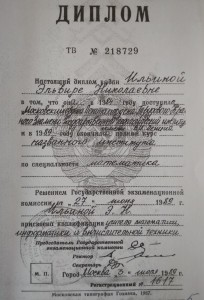 ДИПЛОМ
ТВ № 218729
Настоящий диплом выдан Ильиной
Эльвире Николаевне
в том, что она в 1984 году поступила
в Московский
и в 1989 году окончила полный курс
названного института
по специальности математика
Решением Государственной экзаменационной
комиссии от 27 июня 1989 г.
Ильиной Э. Н.
присвоена квалификация учителя математики,
информатики и вычислительной техники
Председатель Государственной
экзаменационной комиссии
Ректор
Секретарь
М. П. Город Москва 3 июля 1989 г.
Регистрационный №
Московская типография Гознака. 1982.